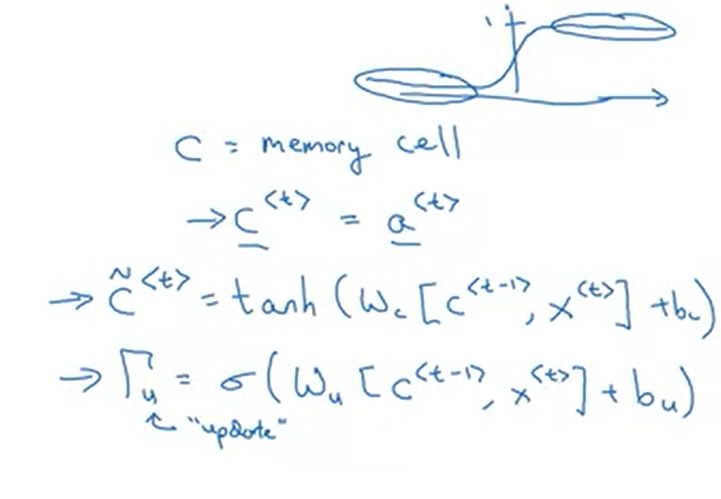 1
C = memory cell
→ C^{<t>} = a^{<t>}
→ C̃^{<t>} = tanh (W_c [c^{<t-1>}, x^{<t>}] + b_c)
→ Γ_u = σ(W_u [c^{<t-1>}, x^{<t>}] + b_u)
"update"